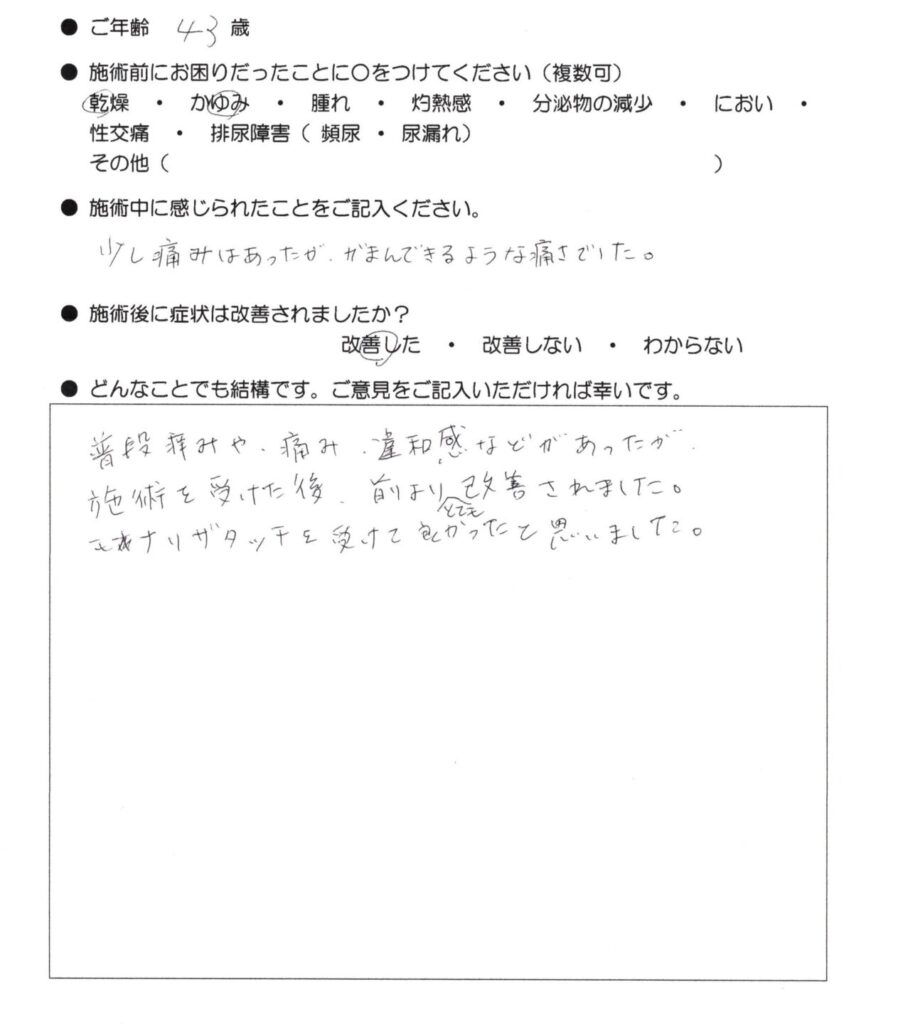 ● ご年齢 43 歳
● 施術前にお困りだったことに〇をつけてください（複数可）
乾燥 ・ かゆみ ・ 腫れ ・ 灼熱感 ・ 分泌物の減少 ・ におい ・
性交痛 ・ 排尿障害（ 頻尿 ・ 尿漏れ）
その他（ ）
● 施術中に感じられたことをご記入ください。
少し痛みはあったが、がまんできるような痛さでした。
● 施術後に症状は改善されましたか？
改善した ・ 改善しない ・ わからない
● どんなことでも結構です。ご意見をご記入いただければ幸いです。
普段痒みや、痛み、違和感などがあったが、
施術を受けた後、前より改善されました。
とても
モナリザタッチを受けて良かったと思いました。